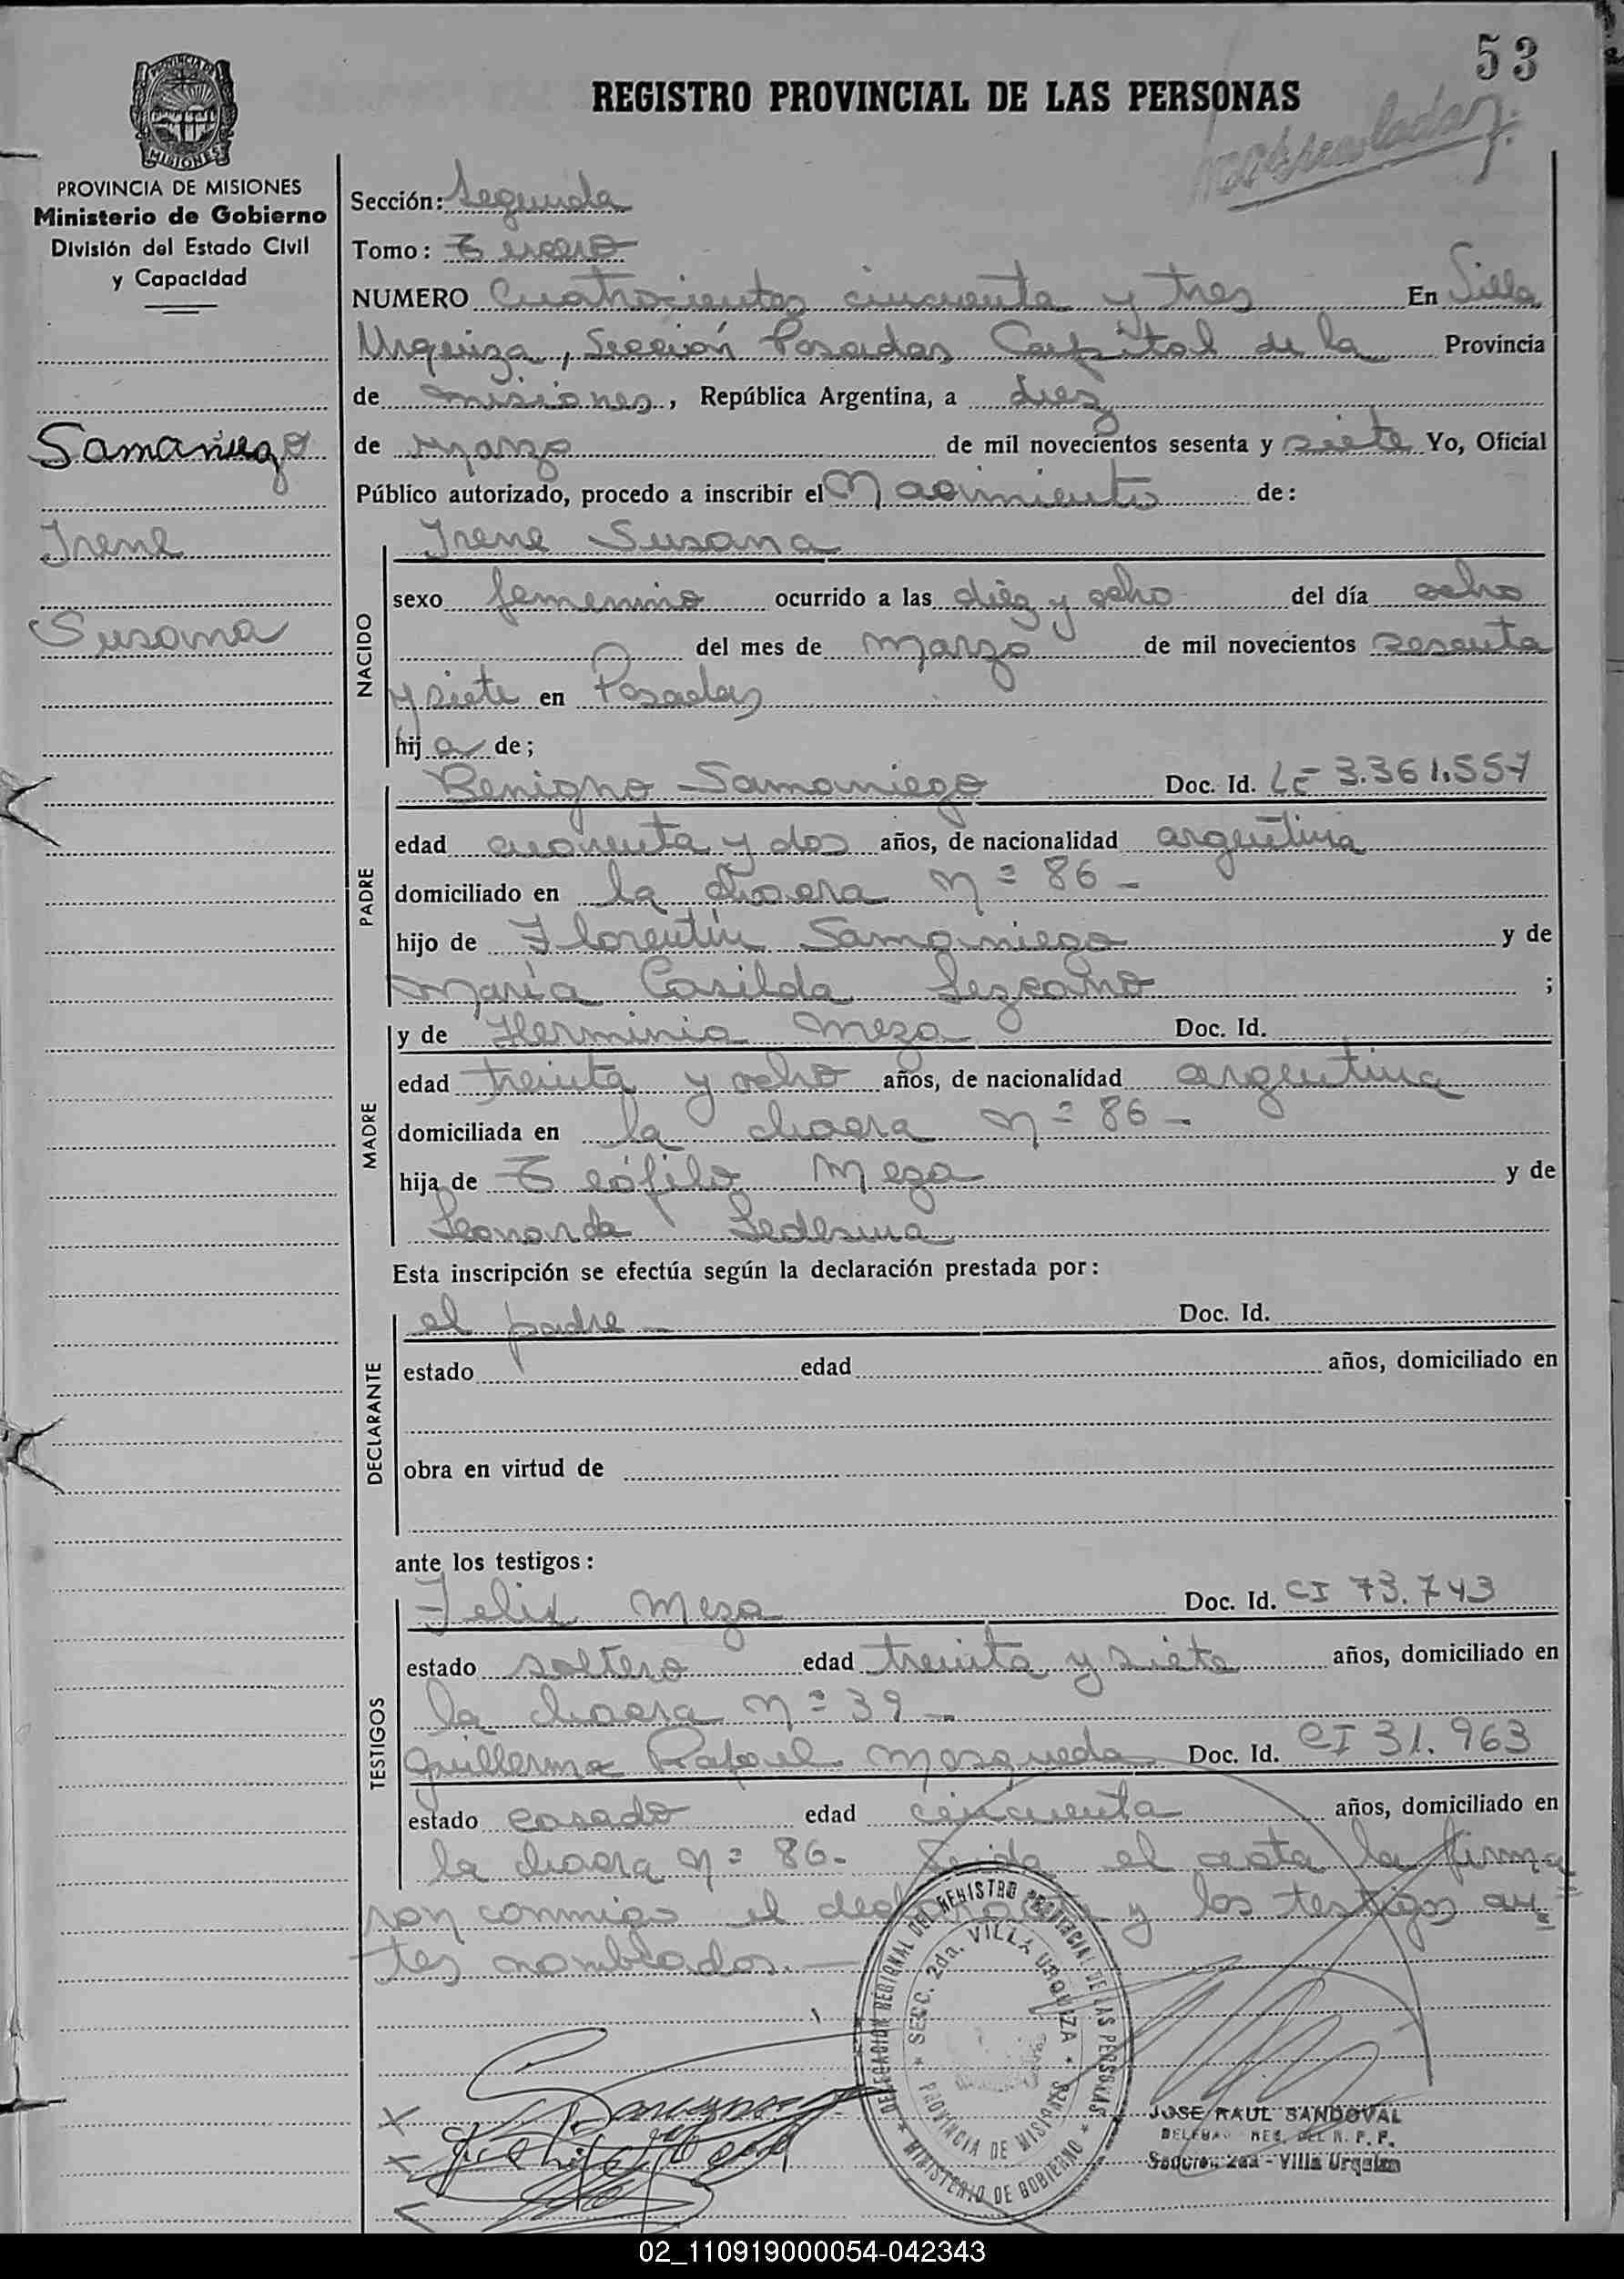 53
REGISTRO PROVINCIAL DE LAS PERSONAS
PROVINCIA DE MISIONES
MISIONES
PROVINCIA DE MISIONES
Ministerio de Gobierno
División del Estado Civil
y Capacidad
Samaniego
Irene
Susana
Sección: Segunda
Tomo: Tercero
NUMERO Cuatrocientos cincuenta y tres En Villa
Urquiza, Sección Posadas Capital de la Provincia
de Misiones, República Argentina, a diez
de Marzo de mil novecientos sesenta y siete Yo, Oficial
Público autorizado, procedo a inscribir el Nacimiento de:
NACIDO
Irene Susana
sexo femenino ocurrido a las diez y ocho del día ocho
del mes de Marzo de mil novecientos sesenta
y siete en Posadas
hija de;
PADRE
Benigno Samaniego Doc. Id. LE 3.361.557
edad cuarenta y dos años, de nacionalidad argentina
domiciliado en la chacra Nº 86 -
hijo de Florentín Samaniego y de
María Casilda Lezcano ;
MADRE
y de Herminia Meza Doc. Id.
edad treinta y ocho años, de nacionalidad argentina
domiciliada en la chacra Nº 86 -
hija de Teófilo Meza y de
Leonarda Ledesma
Esta inscripción se efectúa según la declaración prestada por:
DECLARANTE
el padre - Doc. Id.
estado edad años, domiciliado en
obra en virtud de
ante los testigos:
TESTIGOS
Felix Meza Doc. Id. CI 73.743
estado soltero edad treinta y siete años, domiciliado en
la chacra Nº 39 -
Guillermo Rafael Mosqueda Doc. Id. CI 31.963
estado casado edad cincuenta años, domiciliado en
la chacra Nº 86- Leida el acta la firma
ron conmigo el declarante y los testigos an=
tes nombrados.-
DELEGACION REGIONAL DEL REGISTRO PROVINCIAL DE LAS PERSONAS
SECC. 2da. VILLA URQUIZA
PROVINCIA DE MISIONES
MINISTERIO DE GOBIERNO
JOSE RAUL SANDOVAL
DELEGAD REG. DEL R. P. P.
Sección 2da - Villa Urquiza
02_110919000054-042343